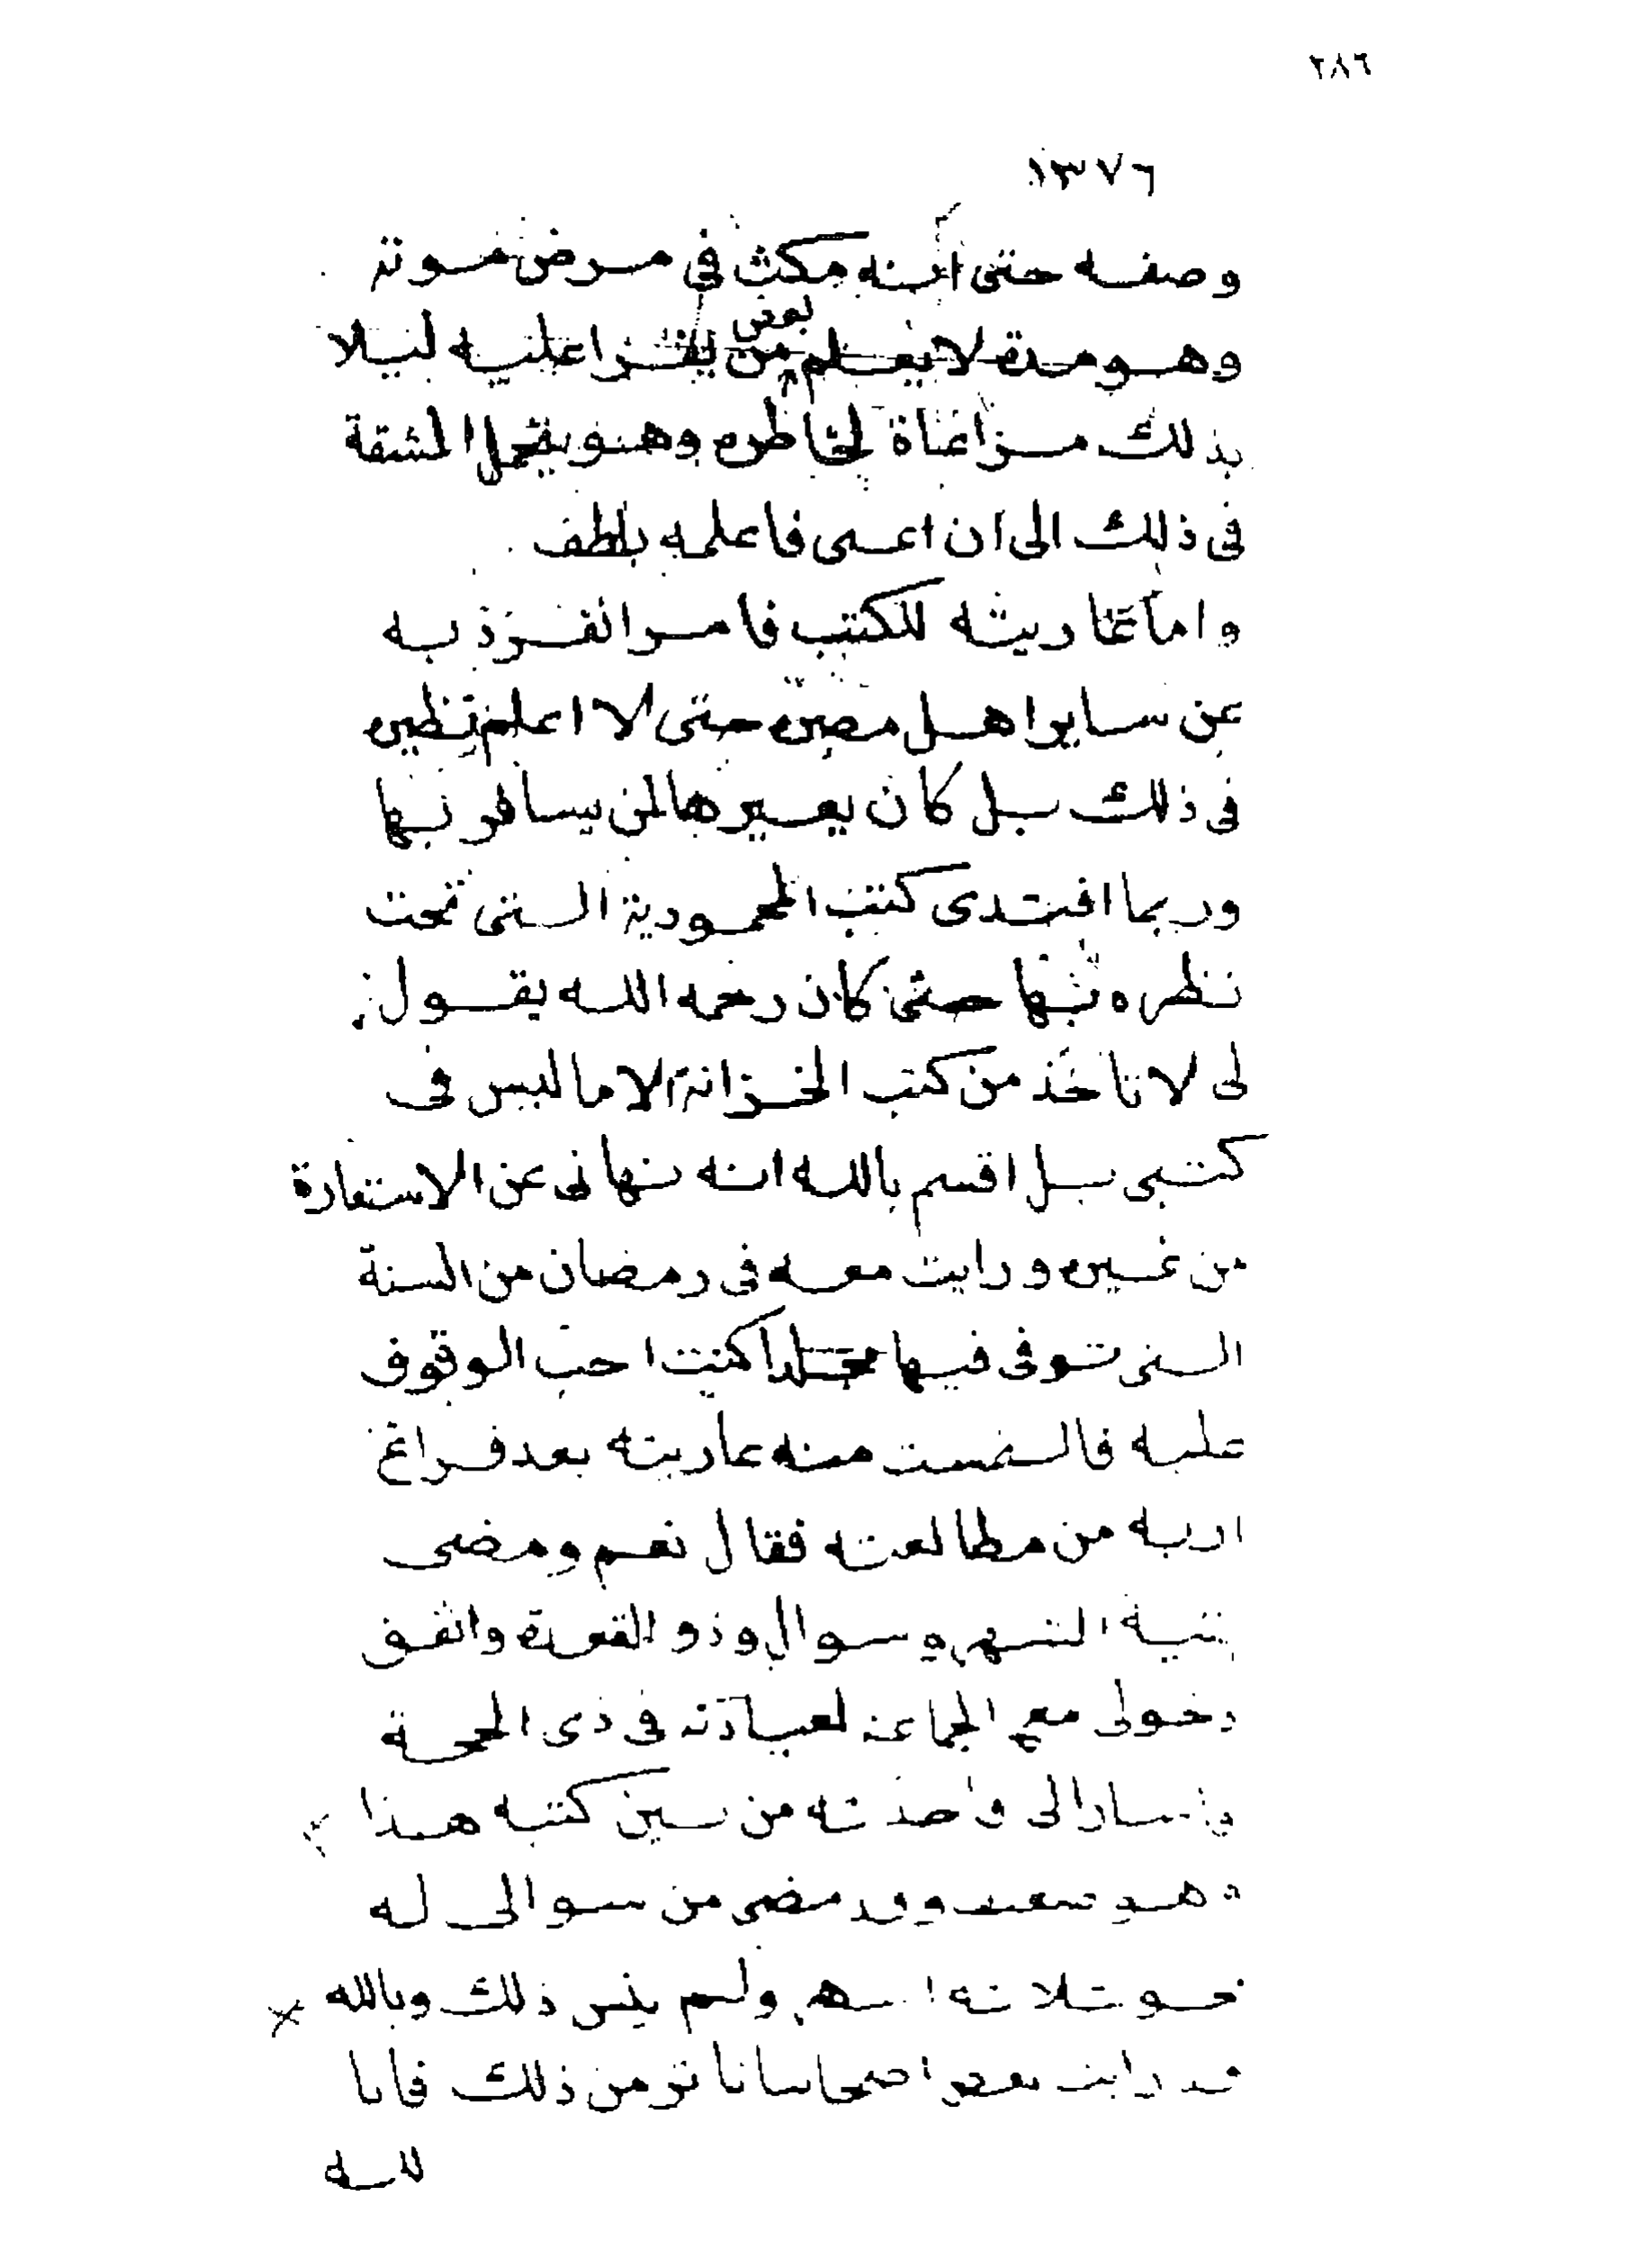 ٢٨٦
١٣٧٦
وصفه حتى انه مكث في مرض موته
وهو مدة لا يعلم بعض من يقرا عليه ليلا
بذلك مراعاة لخاطره وهو يتحمل المشقة
في ذلك الى ان اعمى فاعلمه بلطف
واما عاريته للكتب فامر انفرد به
عن ساير اهل مصره حتى لا اعلم نظيره
في ذلك بل كان يعيرها لمن يسافر بها
وربما افتدى كتب المحمودية التى تحت
نظره بها حتى كان رحمه الله يقول
لى لا تاخذ من كتب الخزانة الا ما ليس فى
كتبى بل اقسم بالله انه نهانى عن الاستعارة
من غيره ورايت معه فى رمضان من السنة
التى توفى فيها مجلدا كنت احب الوقوف
عليه فالتمست منه عاريته بعد فراغ
اربه من مطالعته فقال نعم ومضى
بقية الشهر وشوال وذو القعدة واتفق
دخولى مع الجماعة لعيادته فى ذى الحجة
فاشار الى فاخذته من بين كتبه هذا
وهو ضعيف وقد مضى من سوالى له
نحو ثلاثة اشهر ولم ينس ذلك وبالله
قد رايت بعض اصحابنا تاثر من ذلك فانا
لله